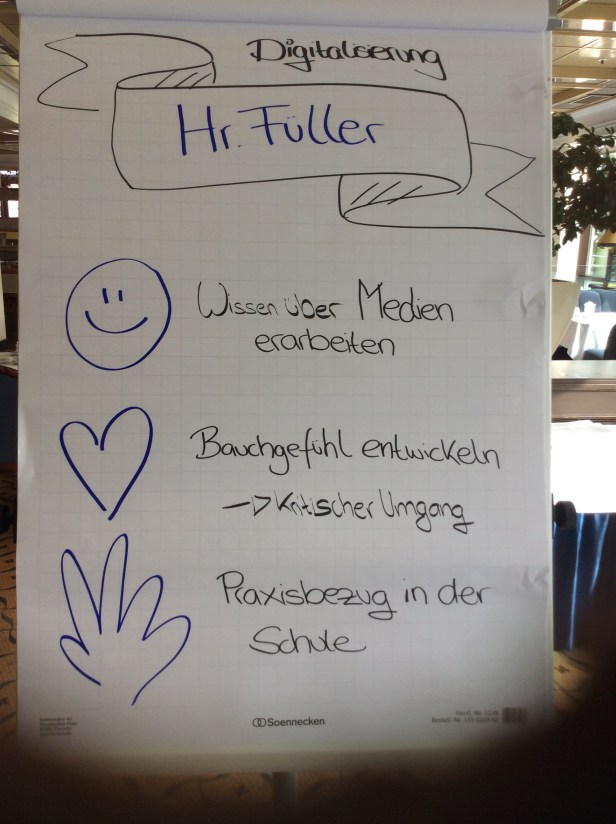 Digitalisierung
Hr. Füller
Wissen über Medien
erarbeiten
Bauchgefühl entwickeln
—> Kritischer Umgang
Praxisbezug in der
Schule
Soennecken